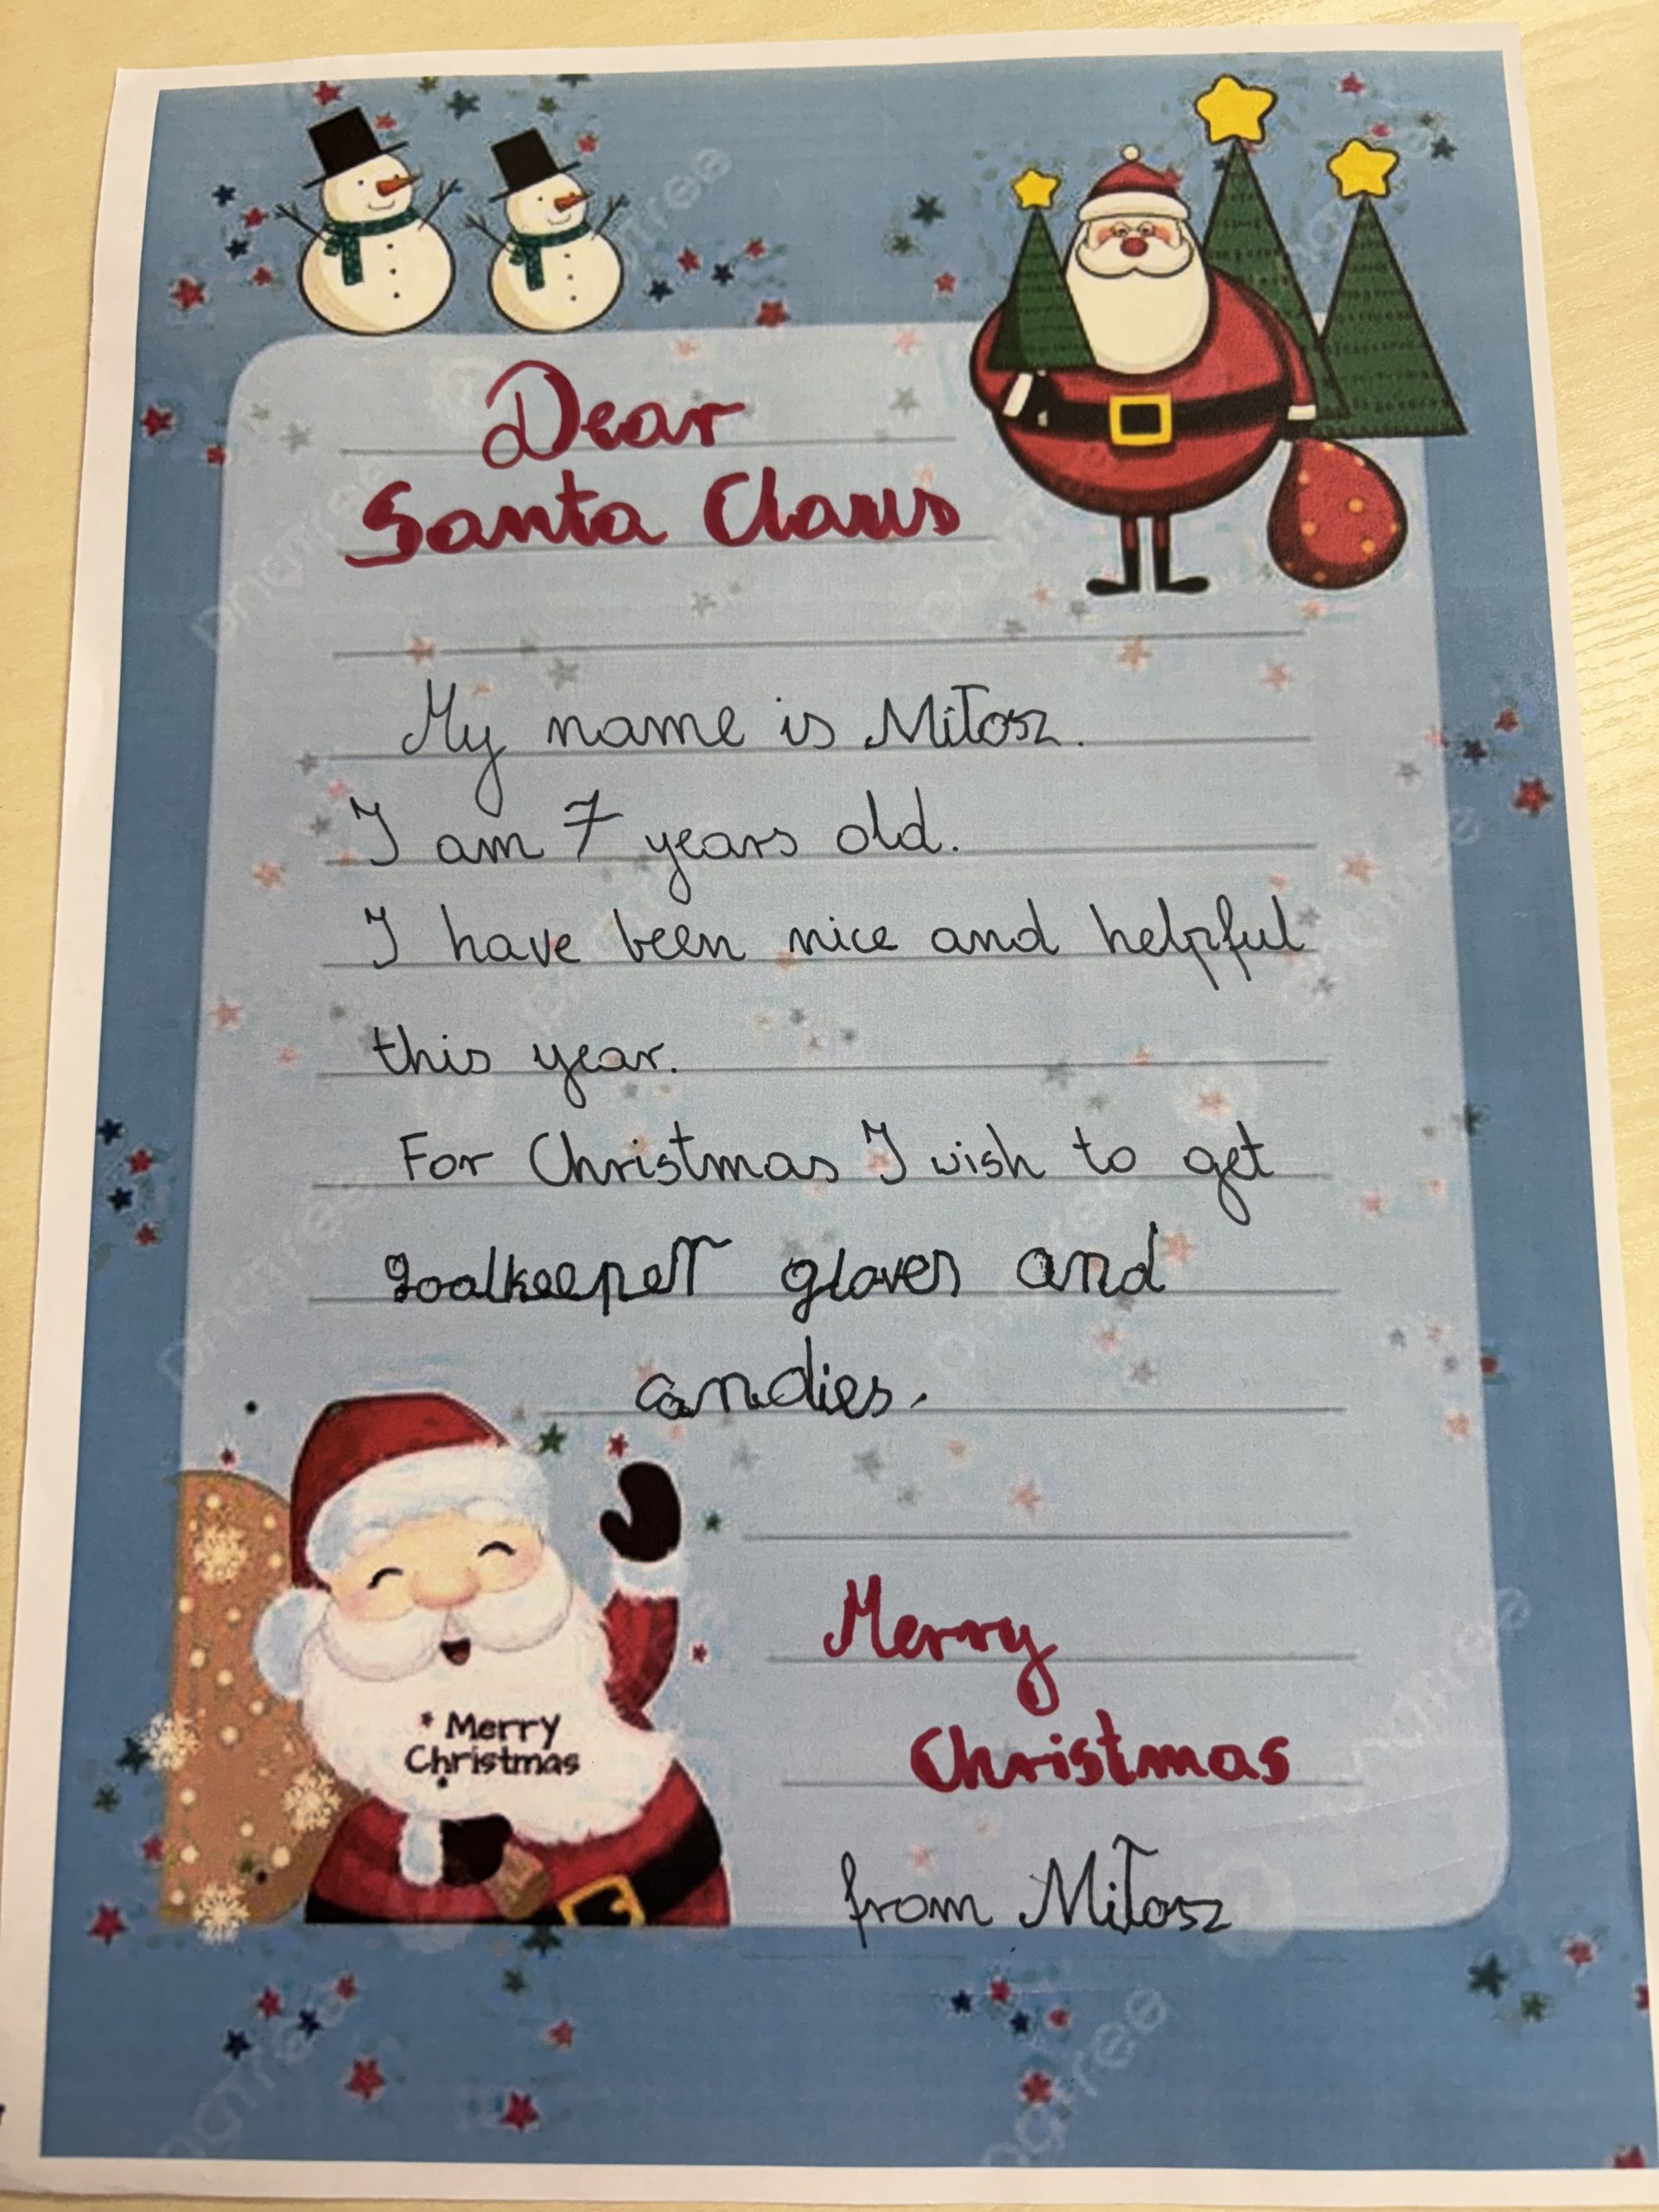 Dear
Santa Claus
My name is Miłosz.
I am 7 years old.
I have been nice and helpful
this year.
For Christmas I wish to get
goalkeeper gloves and
candies.
Merry
Christmas
Merry
Christmas
from Miłosz